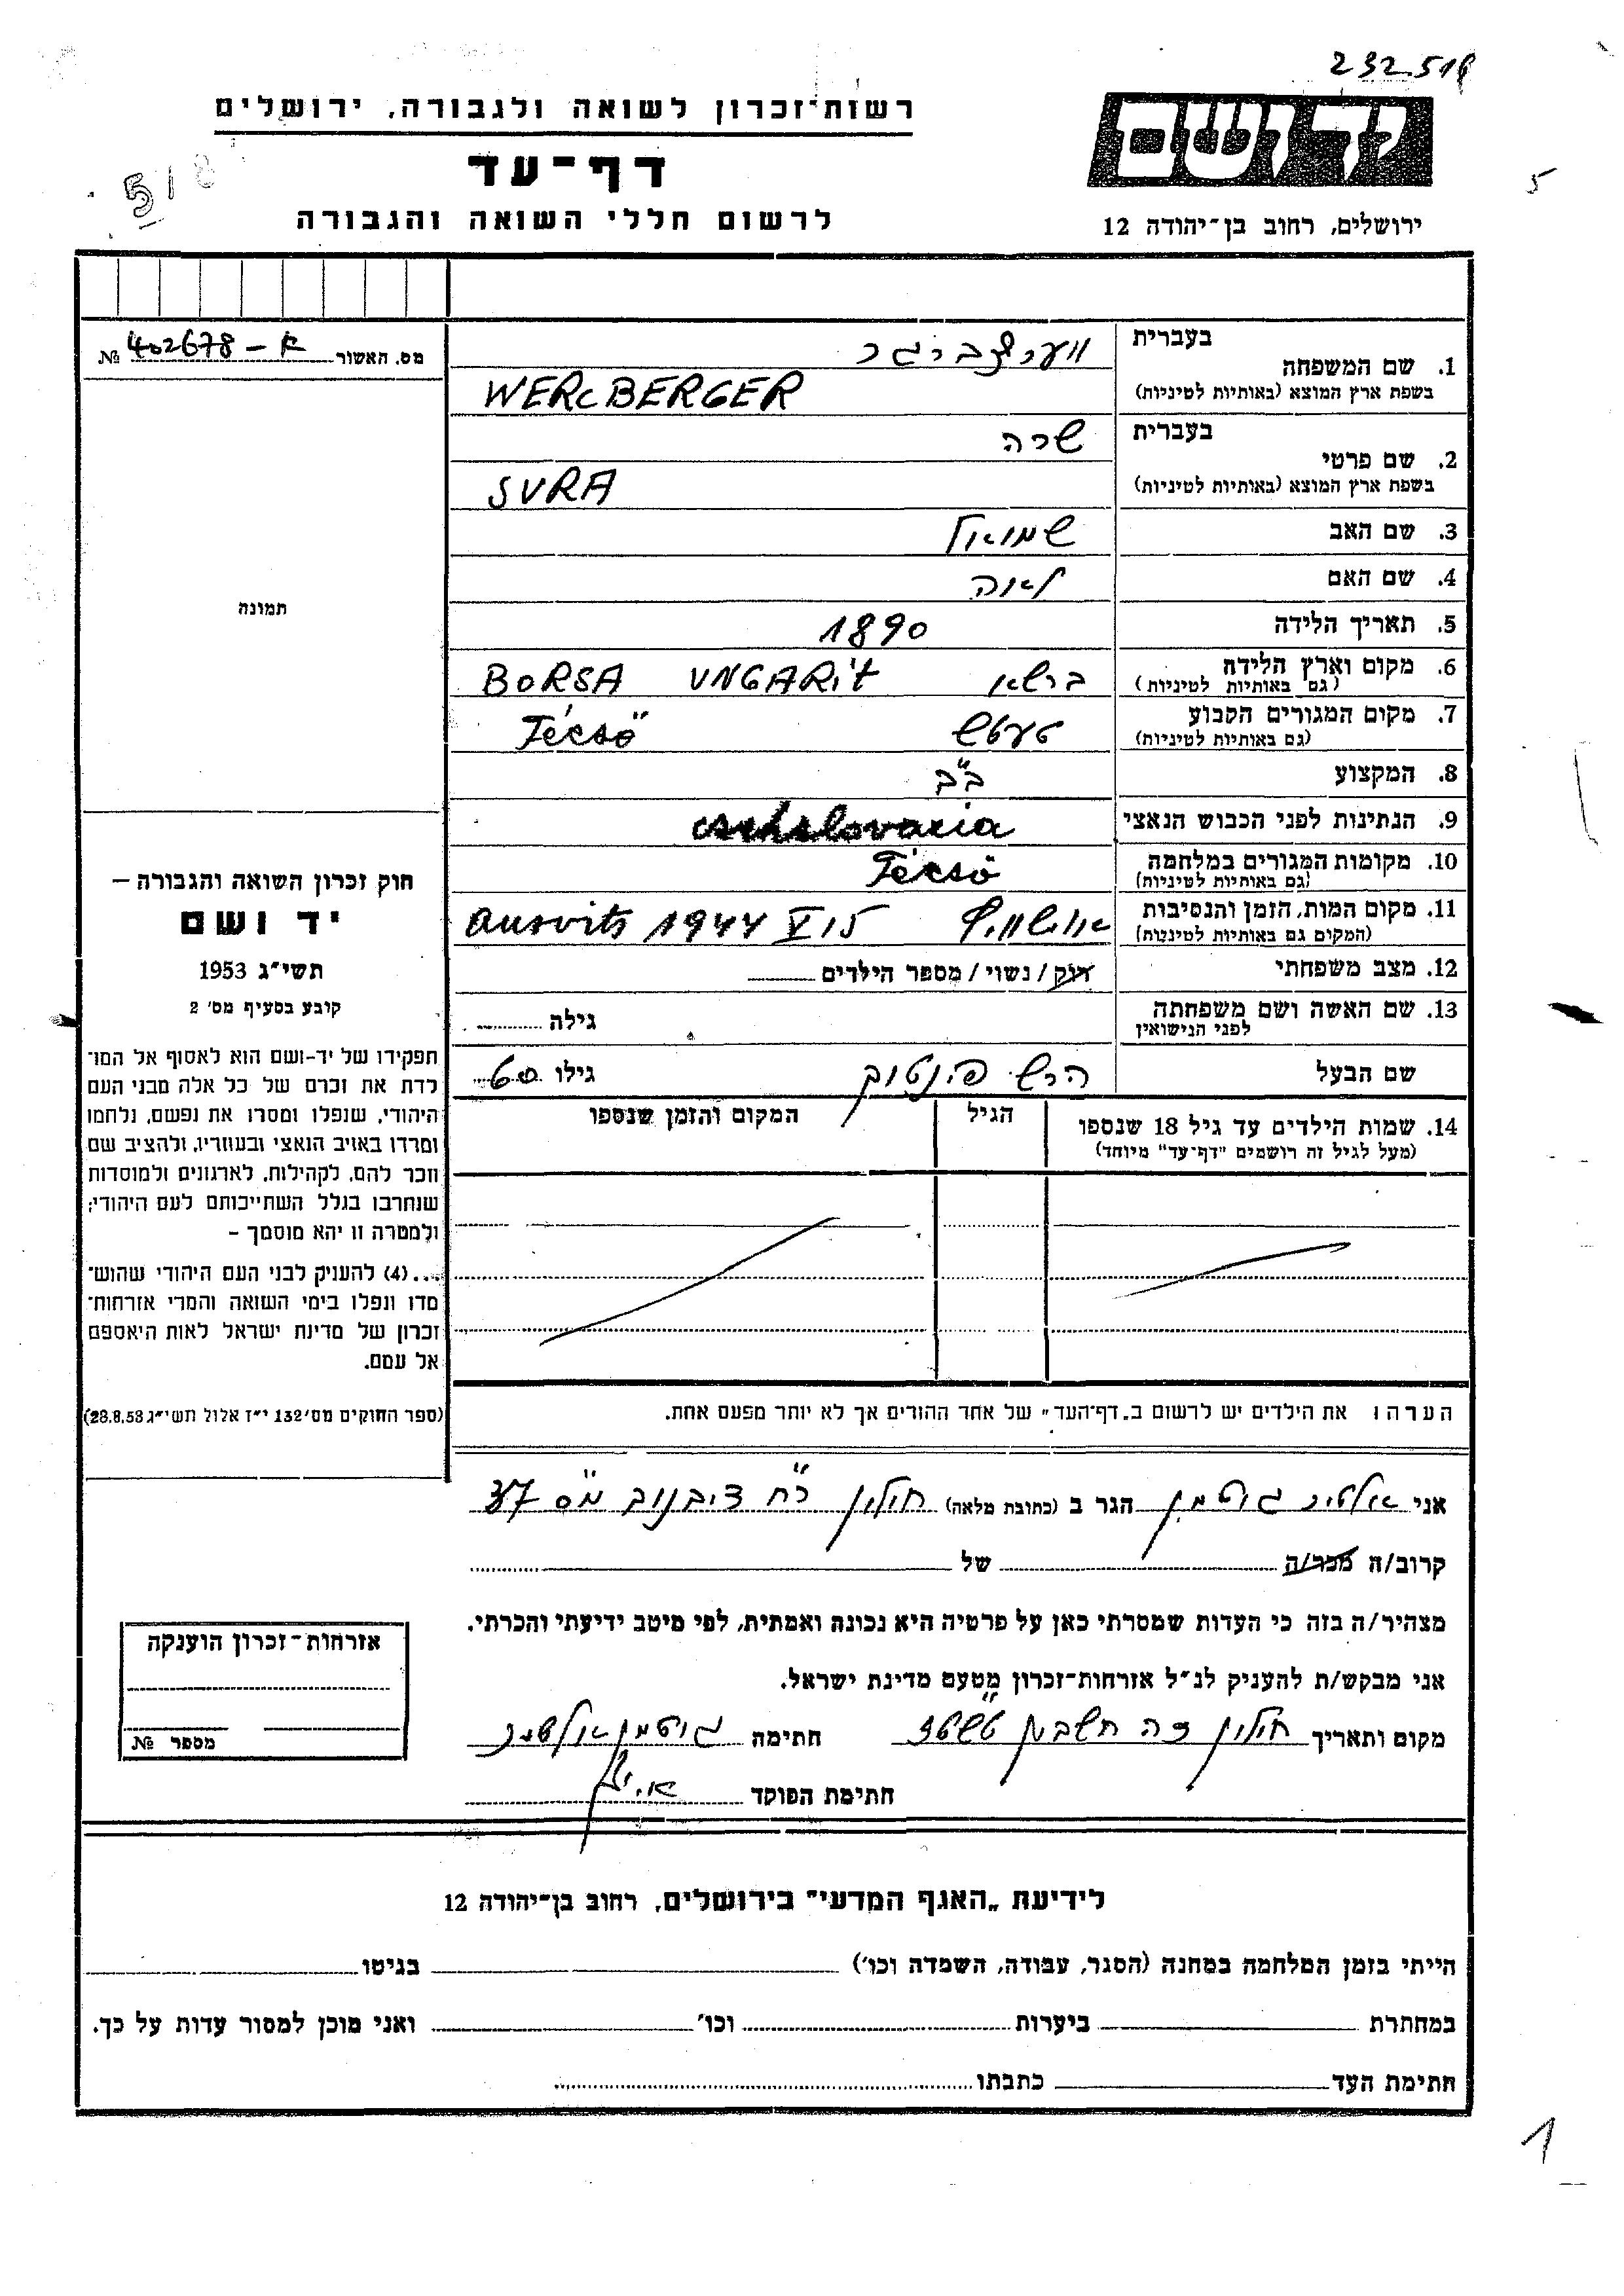 232.518
רשות־זכרון לשואה ולגבורה, ירושלים
יד ושם
דף־עד
5
518
לרשום חללי השואה והגבורה
ירושלים, רחוב בן־יהודה 12
מס. האשור 402678 – א №
בעברית
ווערצברגר
1. שם המשפחה
בשפת ארץ המוצא (באותיות לטיניות) WERCBERGER
בעברית שרה
2. שם פרטי
בשפת ארץ המוצא (באותיות לטיניות) SURA
3. שם האב שמואל
4. שם האם לאה
תמונה
5. תאריך הלידה 1890
6. מקום וארץ הלידה ברשא UNGARIT BORSA
(גם באותיות לטיניות)
7. מקום המגורים הקבוע טעטש Técsö
(גם באותיות לטיניות)
8. המקצוע ב"ב
9. הנתינות לפני הכבוש הנאצי
10. מקומות המגורים במלחמה Técsö
(גם באותיות לטיניות)
11. מקום המות, הזמן והנסיבות Ausvits 1944 V 15
(המקום גם באותיות לטיניות)
12. מצב משפחתי רוק / נשוי / מספר הילדים
13. שם האשה ושם משפחתה גילה
לפני הנישואין
שם הבעל הרש גילו 60
חוק זכרון השואה והגבורה –
יד ושם
תשי״ג 1953
קובע בסעיף מס׳ 2
תפקידו של יד-ושם הוא לאסוף אל המו־
לדת את זכרם של כל אלה מבני העם
היהודי, שנפלו ומסרו את נפשם, נלחמו
ומרדו באויב הנאצי ובעוזריו, ולהציב שם
וזכר להם, לקהילות, לארגונים ולמוסדות
שנחרבו בגלל השתייכותם לעם היהודי;
ולמטרה זו יהא מוסמך –
...(4) להעניק לבני העם היהודי שהוש־
מדו ונפלו בימי השואה והמרי אזרחות־
זכרון של מדינת ישראל לאות היאספם
אל עמם.
(ספר החוקים מס׳ 132 י״ז אלול תשי״ג 28.8.53)
14. שמות הילדים עד גיל 18 שנספו הגיל המקום והזמן שנספו
(מעל לגיל זה רושמים "דף־עד" מיוחד)
הערה: את הילדים יש לרשום ב„דף־העד" של אחד ההורים אך לא יותר מפעם אחת.
אני גוטמן הגר ב (כתובת מלאה) חולון רח' דובנוב מס 37
קרוב/ה מכר/ה של
מצהיר/ה בזה כי העדות שמסרתי כאן על פרטיה היא נכונה ואמתית, לפי מיטב ידיעתי והכרתי.
אני מבקש/ת להעניק לנ״ל אזרחות־זכרון מטעם מדינת ישראל.
מקום ותאריך חולון חשבון חתימה גוטמן
חתימת הפוקד
אזרחות־זכרון הוענקה
מספר №
לידיעת „האגף המדעי" בירושלים, רחוב בן־יהודה 12
הייתי בזמן המלחמה במחנה (הסגר, עבודה, השמדה וכו׳) בגיטו
במחתרת ביערות וכו׳ ואני מוכן למסור עדות על כך.
חתימת העד כתבתו
1